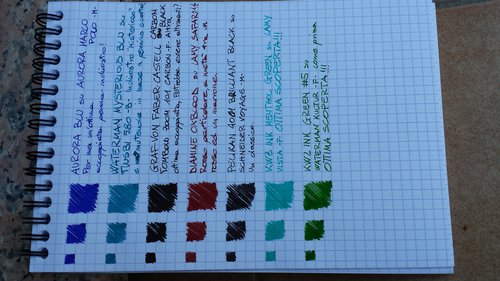 AURORA BLU su AURORA MARCO
POLO M.
Per una inchiostro
accoppiata penna inchiostro!
WATERMAN MYSTERIOUS BLU su
TWSBI 580 - B - Inchiostro "misterioso"
e in base a penna e carta
GRAF VON FABER-CASTELL CARBON
BLACK
TOMBOW ZOOM 101 CARBON - F. Altra
ottima accoppiata, Potrebbe essere altrimenti?
DIAMINE OXBLOOD su LAMY SAFARI
Rosso particolare, a metà tra un
rosso ed un marrone
PELIKAN 4001 BRILLIANT BLACK su
SCHNEIDER VOYAGE - M.
Un classico.
KWZ INK MENTHOL GREEN su LAMY
VISTA - F. OTTIMA SCOPERTA!!!
KWZ INK GREEN #5 su
WATERMAN KULTUR - F. come prima
OTTIMA SCOPERTA!!!